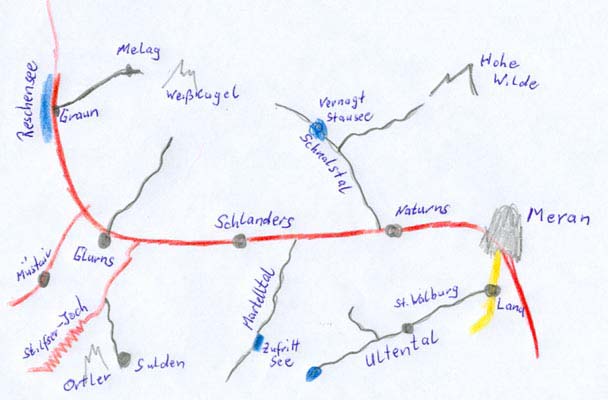 Melag
Weißkugel
Hohe
Wilde
Reschensee
Graun
Vernagt
Stausee
Schnalstal
Schlanders
Naturns
Meran
Glurns
Müstair
Stilfser-Joch
Martelltal
St. Walburg
Lana
Zufritt
See
Ultental
Sulden
Ortler